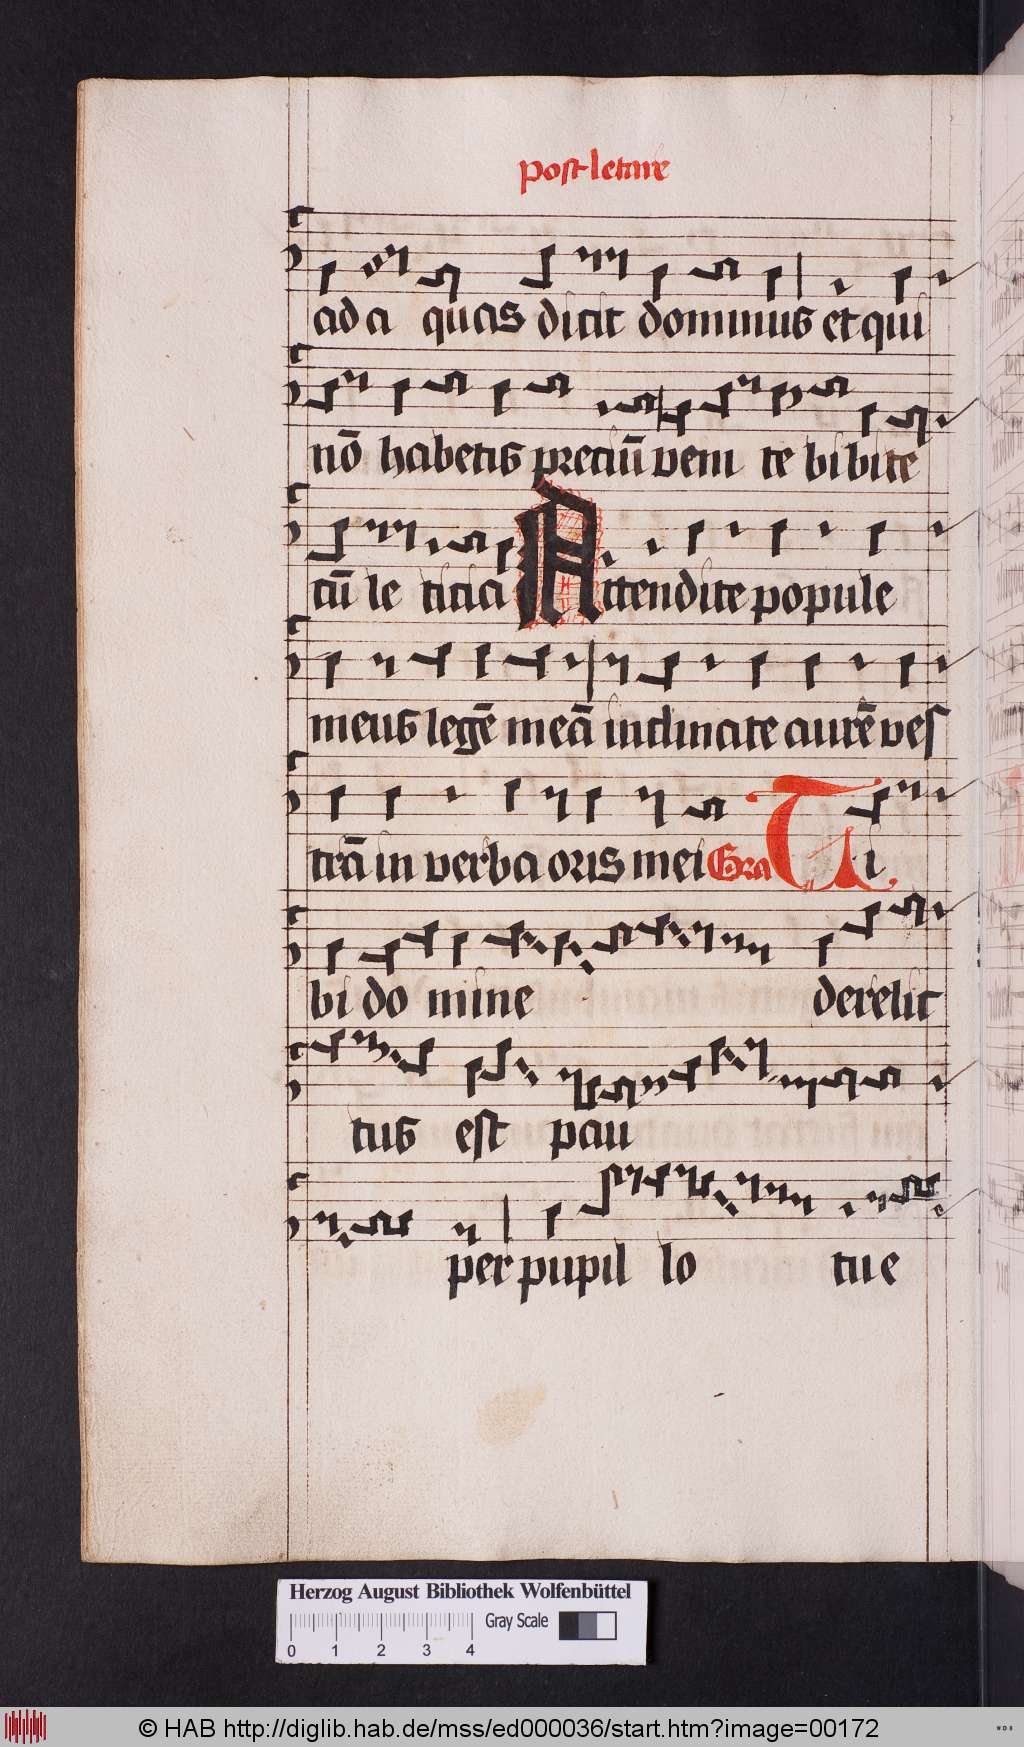 post letare
ad a quas dicit dominus et qui
nō habetis preciū veni te bibite
cū le ticia Attendite popule
meus legē meā inclinate aurē ves
trā in verba oris mei Gra Ti
bi do mine derelic
tus est pau
per pupil lo tu e
Herzog August Bibliothek Wolfenbüttel
Gray Scale
0 1 2 3 4
© HAB http://diglib.hab.de/mss/ed000036/start.htm?image=00172